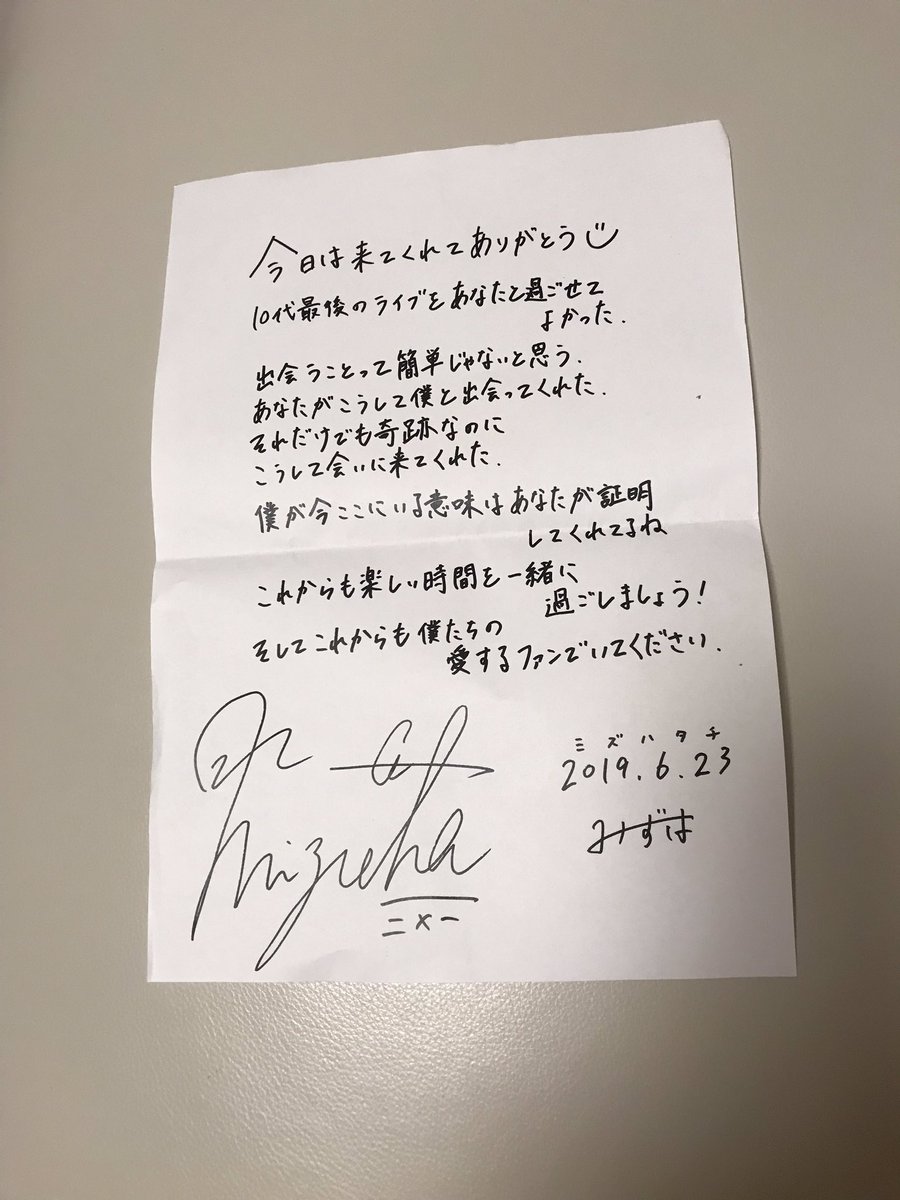 今日は来てくれてありがとう
10代最後のライブをあなたと過ごせて
よかった.
出会うことって簡単じゃないと思う.
あなたがこうして僕と出会ってくれた.
それだけでも奇跡なのに
こうして会いに来てくれた.
僕が今ここにいる意味はあなたが証明
してくれてるね
これからも楽しい時間を一緒に
過ごしましょう!
そしてこれからも僕たちの
愛するファンでいてください.
ミズハタチ
2019.6.23
みずは
Mizuha
ニメー